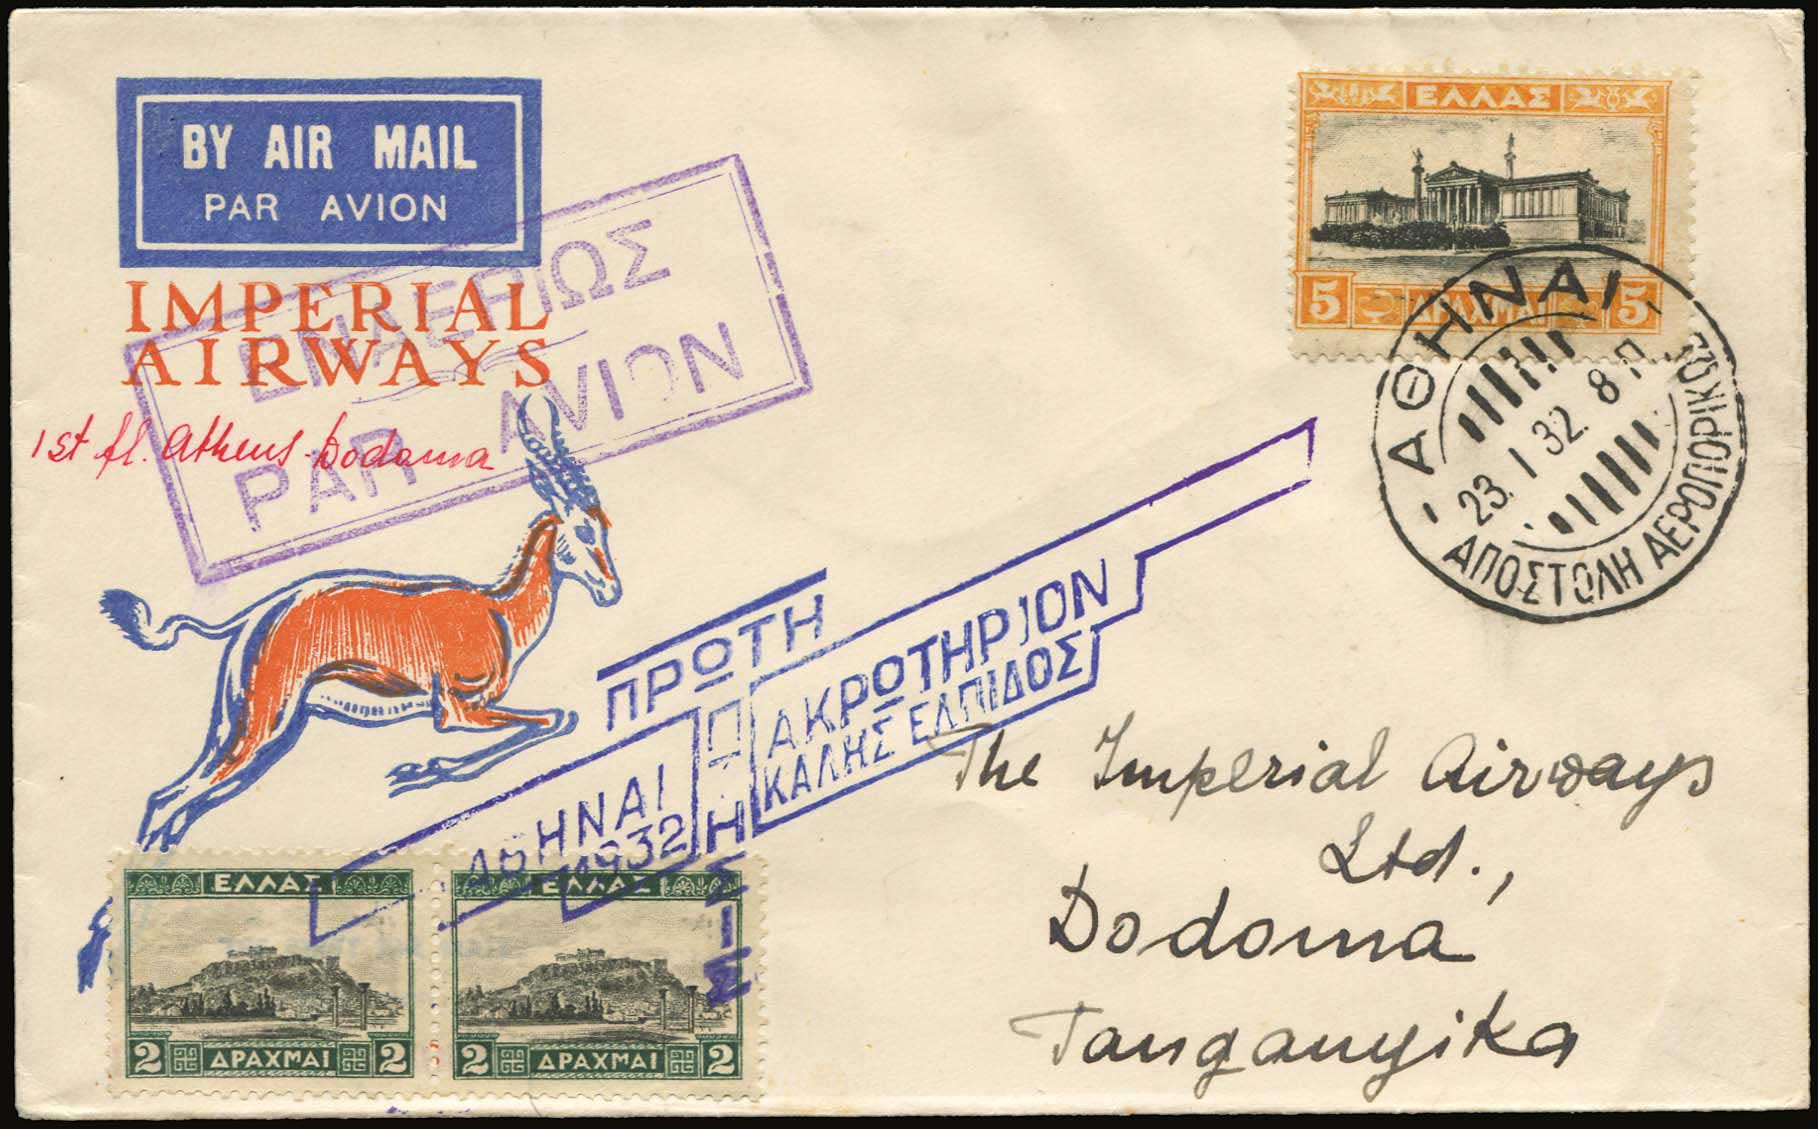 BY AIR MAIL
PAR AVION
IMPERIAL
AIRWAYS
ΕΝΑΕΡΙΩΣ
PAR AVION
1st fl. Athens-Dodoma
ΕΛΛΑΣ
5 ΔΡΑΧΜΑΙ 5
ΑΘΗΝΑΙ
23. 1 32. 8
ΑΠΟΣΤΟΛΗ ΑΕΡΟΠΟΡΙΚΩΣ
ΠΡΩΤΗ
ΠΤΗΣΙΣ
ΑΚΡΩΤΗΡΙΟΝ
ΚΑΛΗΣ ΕΛΠΙΔΟΣ
ΑΘΗΝΑΙ
1932
The Imperial Airways
Ltd.,
Dodoma
Tanganyika
ΕΛΛΑΣ
2 ΔΡΑΧΜΑΙ 2
ΕΛΛΑΣ
2 ΔΡΑΧΜΑΙ 2